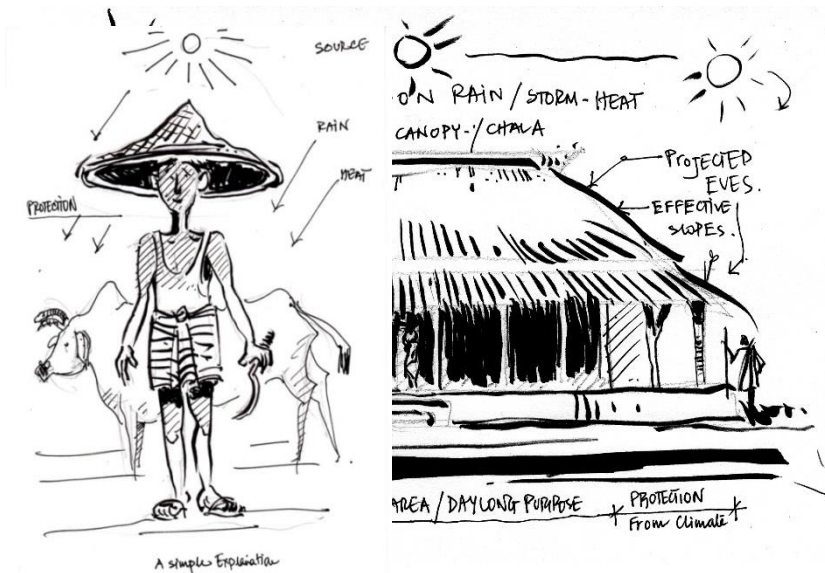 SOURCE
RAIN
HEAT
PROTECTION
A simple Explaination
ON RAIN / STORM-HEAT
CANOPY-/CHALA
PROJECTED
EVES.
EFFECTIVE
SLOPES.
AREA / DAYLONG PURPOSE
PROTECTION
From Climate